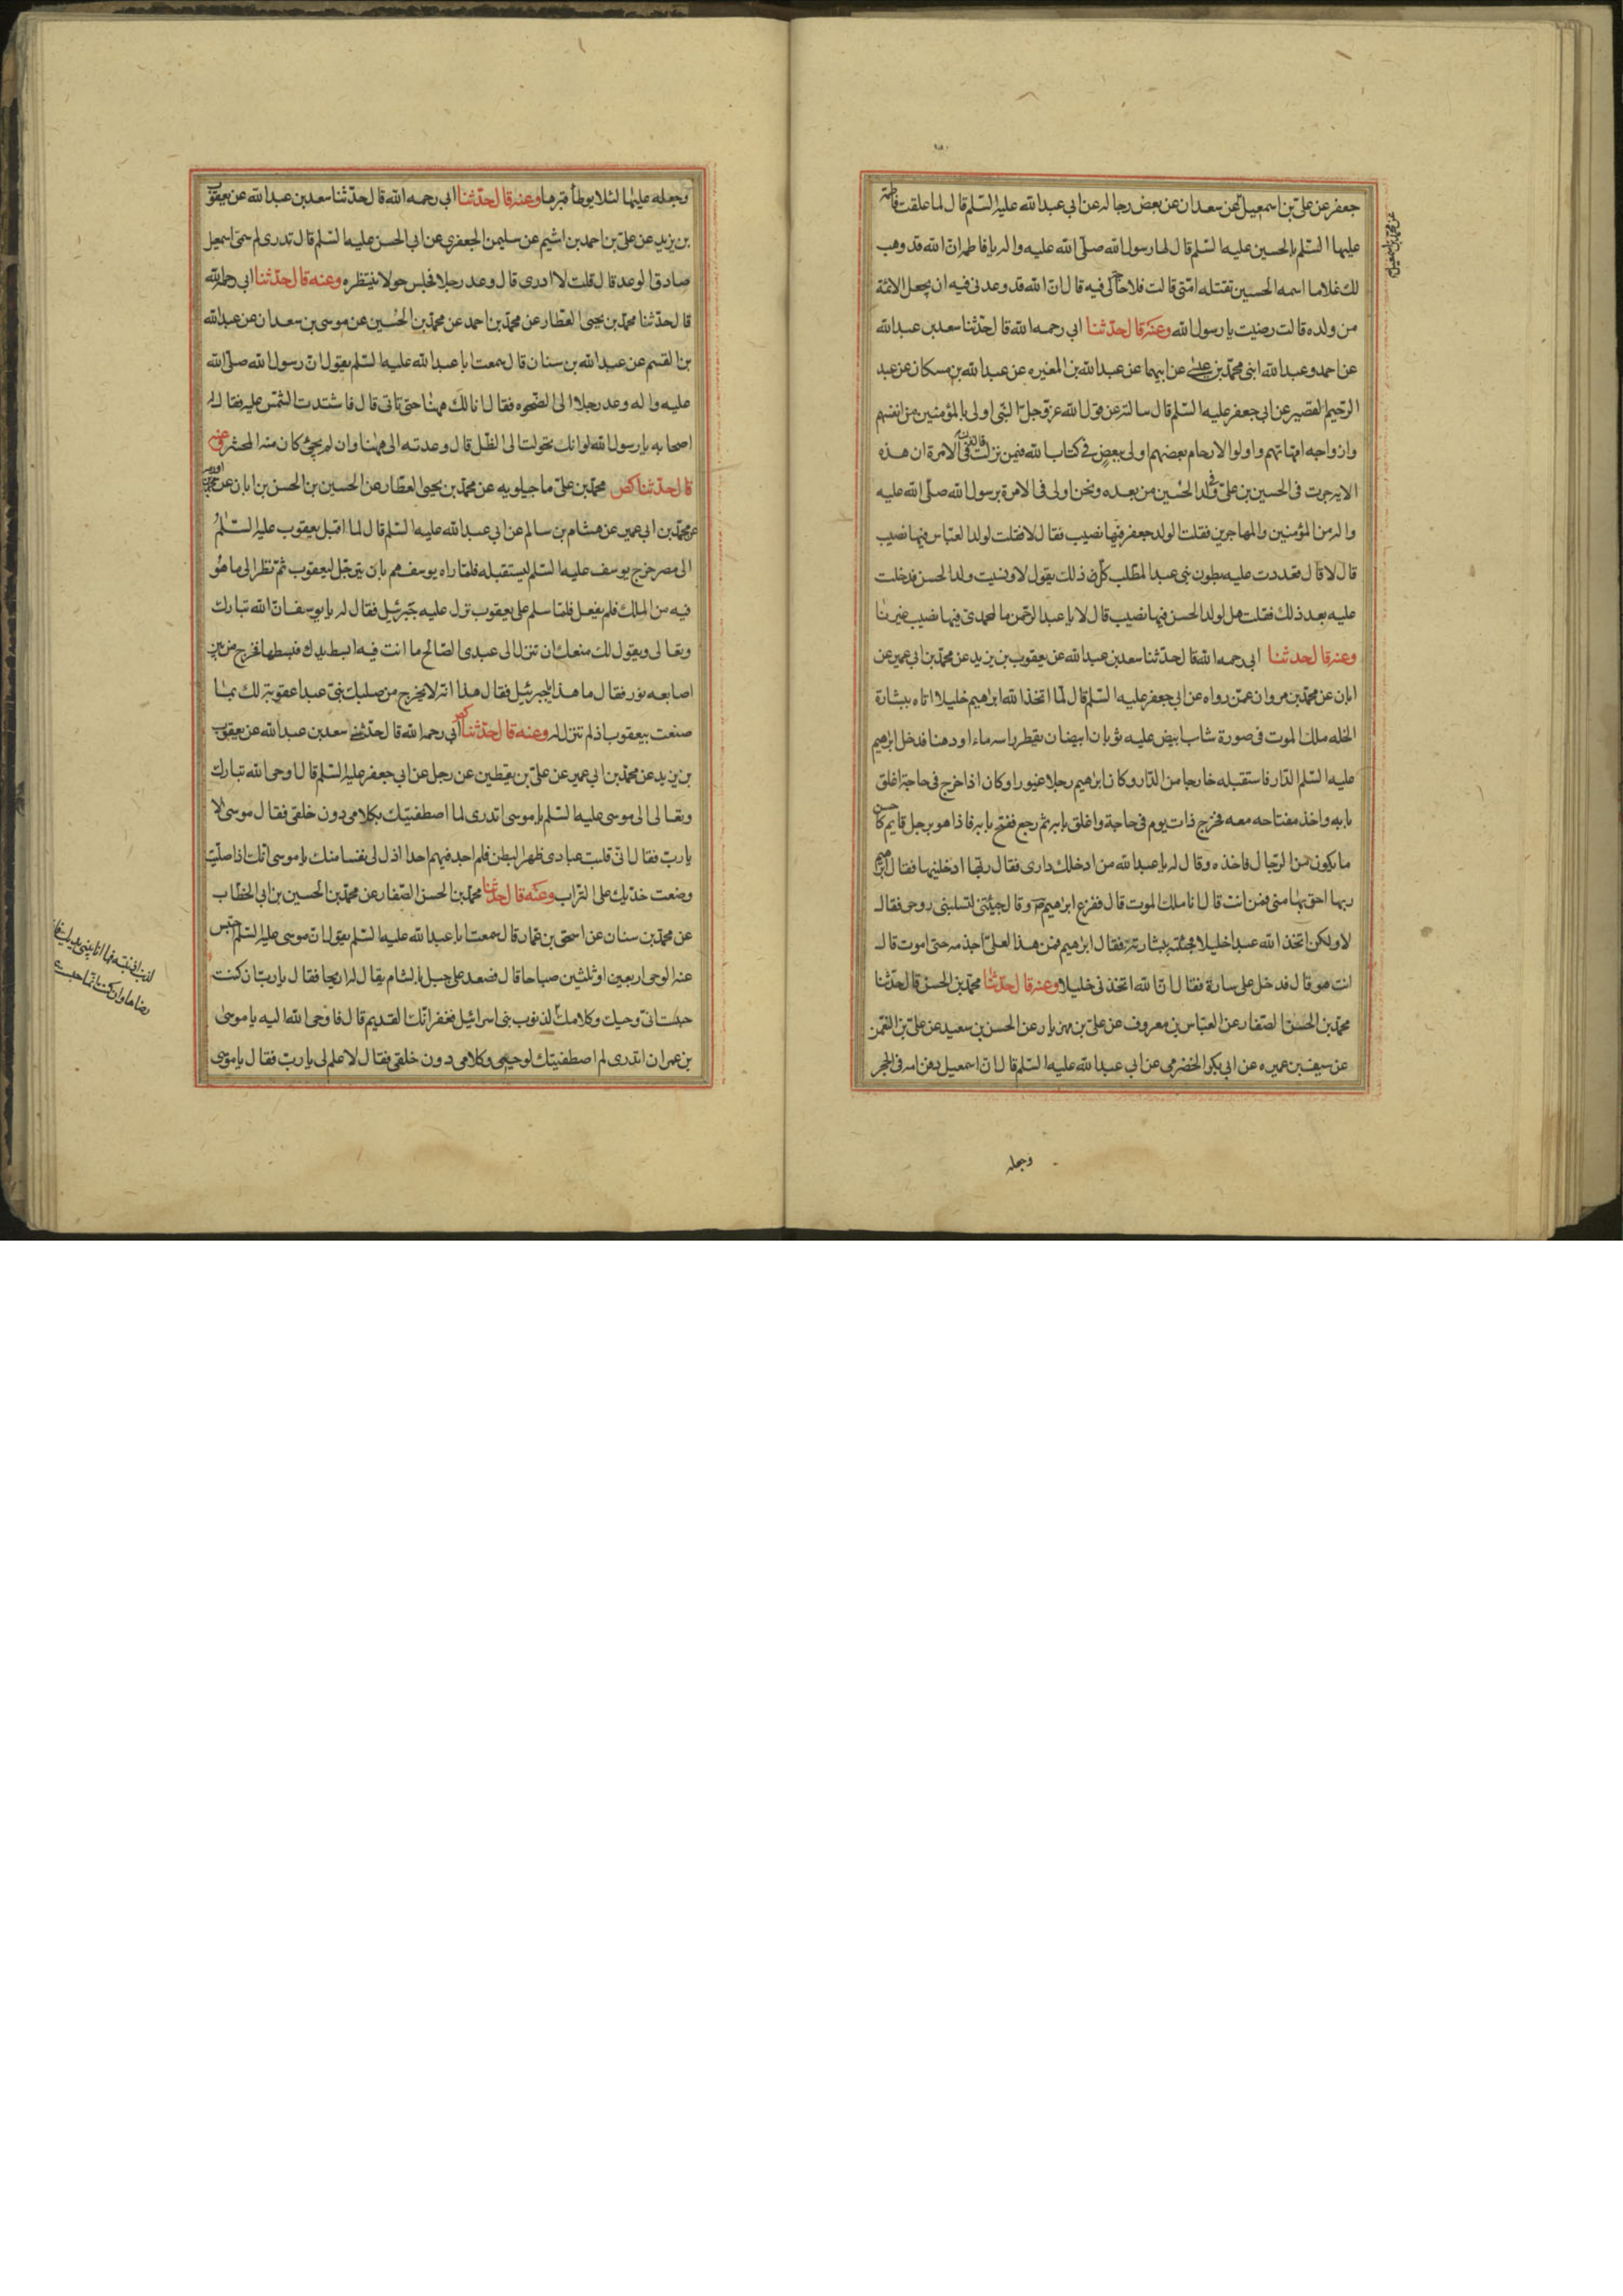 جعفر عن علي بن اسمعيل عن سعدان عن بعض رجاله عن ابي عبدالله عليه السلم قال لما علقت فاطمة
عليها السلم بالحسين عليه السلم قال لها رسول الله صلى الله عليه واله يا فاطمه ان الله قد وهب
لك غلاما اسمه الحسين تقتله امتى قالت فلا حاجة لى فيه قال ان الله قد وعدنى فيه ان يجعل الائمة
من ولده قالت رضيت يا رسول الله وعنه قال حدثنا ابي رحمه الله قال حدثنا سعد بن عبدالله
عن احمد وعبدالله ابنى محمد بن عيسى عن ابيهما عن عبدالله بن المغيره عن عبدالله بن مسكان عن عبد
الرحيم القصير عن ابي جعفر عليه السلم قال سالته عن قول الله عز وجل النبى اولى بالمؤمنين من انفسهم
وازواجه امهاتهم واولوا الارحام بعضهم اولى ببعض فى كتاب الله فيمن نزلت قال نزلت فى الامرة ان هذه
الايه جرت فى الحسين بن على وفى ولد الحسين من بعده ونحن اولى فى الامرة برسول الله صلى الله عليه
واله من المؤمنين والمهاجرين فقلت الولد جعفر فيها نصيب فقال لا فقلت لولد العباس فيها نصيب
قال لا قال فعددت عليه بطون بنى عبد المطلب كل ذلك يقول لا ونسيت ولد الحسن فدخلت
عليه بعد ذلك فقلت هل لولد الحسن فيها نصيب قال لا يا عبد الرحمن ما لمحمدى فيها نصيب غيرنا
وعنه قال حدثنا ابي رحمه الله قال حدثنا سعد بن عبدالله عن يعقوب بن يزيد عن محمد بن ابي عمير عن
ابان عن محمد بن مروان عمن رواه عن ابي جعفر عليه السلم قال لما اتخذ الله ابراهيم خليلا اتاه ببشارة
الخله ملك الموت فى صورة شاب ابيض عليه ثوبان ابيضان يقطر راسه ماء او دهنا فدخل ابرهيم
عليه السلم الدار فاستقبله خارجا من الدار وكان ابرهيم رجلا غيورا وكان اذا خرج فى حاجة اغلق
بابه واخذ مفتاحه معه فخرج ذات يوم فى حاجة واغلق بابه ثم رجع ففتح بابه فاذا هو برجل قايم كاحسن
ما يكون من الرجال فاخذه وقال له يا عبدالله من ادخلك دارى فقال ربها ادخلنيها فقال ابرهيم
ربها احق بها منى فمن انت قال انا ملك الموت قال ففزع ابرهيم وقال جئتنى لتسلبنى روحى فقال
لا ولكن اتخذ الله عبدا خليلا فجئته ببشارته فقال ابرهيم فمن هذا لعلى اخدمه حتى اموت قال
انت هو قال فدخل على سارة فقال ان الله اتخذنى خليلا وعنه قال حدثنا محمد بن الحسن قال حدثنا
محمد بن الحسن الصفار عن العباس بن معروف عن علي بن مهزيار عن الحسن بن سعيد عن علي بن النعمن
عن سيف بن عميره عن ابي بكر الحضرمى عن ابي عبدالله عليه السلم قال ان اسمعيل دفن امه فى الحجر
وجعله
وجعله عليها لئلا يوطأ قبرها وعنه قال حدثنا ابي رحمه الله قال حدثنا سعد بن عبدالله عن يعقوب
بن يزيد عن علي بن احمد بن اشيم عن سليمن الجعفري عن ابي الحسن عليه السلم قال تدرى لم سمى اسمعيل
صادق الوعد قال قلت لا ادرى قال وعد رجلا فجلس حولا ينتظره وعنه قال حدثنا ابي رحمه الله
قال حدثنا محمد بن يحيى العطار عن محمد بن احمد عن محمد بن الحسين عن موسى بن سعدان عن عبدالله
بن القسم عن عبدالله بن سنان قال سمعت ابا عبدالله عليه السلم يقول ان رسول الله صلى الله
عليه واله وعد رجلا الى الصخره فقال انا لك ههنا حتى تاتى قال فاشتدت الشمس عليه فقال له
اصحابه يا رسول الله لو انك تحولت الى الظل قال وعدته الى ههنا وان لم يجئ كان منه المحشر وعنه
قال حدثنا محمد بن على ماجيلويه عن محمد بن يحيى العطار عن الحسين بن الحسن بن ابان عن محمد بن اورمه
عن محمد بن ابي عمير عن هشام بن سالم عن ابي عبدالله عليه السلم قال لما اقبل يعقوب عليه السلم
الى مصر خرج يوسف عليه السلم ليستقبله فلما راه يوسف هم بان يترجل ليعقوب ثم نظر الى ما هو
فيه من الملك فلم يفعل فلما سلم على يعقوب نزل عليه جبرئيل فقال له يا يوسف ان الله تبارك
وتعالى ويقول لك منعك ان تنزل الى عبدى الصالح ما انت فيه ابسط يدك فبسطها فخرج من بين
اصابعه نور فقال ما هذا يا جبرئيل فقال هذا انه لا يخرج من صلبك نبى عبدا عقوبة لك بما
صنعت بيعقوب اذ لم تنزل له وعنه قال حدثنا ابي رحمه الله قال حدثنى سعد بن عبدالله عن يعقوب
بن يزيد عن محمد بن ابي عمير عن علي بن يقطين عن رجل عن ابي جعفر عليه السلم قال اوحى الله تبارك
وتعالى الى موسى عليه السلم يا موسى اتدرى لما اصطفيتك بكلامى دون خلقى فقال موسى لا
يا رب فقال انى قلبت عبادى ظهر البطن فلم اجد فيهم احدا اذل لى نفسا منك يا موسى انك اذا صليت
وضعت خديك على التراب وعنه قال حدثنا محمد بن الحسن الصفار عن محمد بن الحسين بن ابي الخطاب
عن محمد بن سنان عن اسحق بن عمار قال سمعت ابا عبدالله عليه السلم يقول ان موسى عليه السلم حبس
عنه الوحى اربعين او ثلثين صباحا قال فصعد على جبل بالشام يقال له اريحا فقال يا رب ان كنت
حبست انى وحيك وكلامك لذنوب بنى اسرائيل فغفرانك القديم قال فاوحى الله اليه يا موسى
بن عمران اتدرى لم اصطفيتك لوحيى وكلامى دون خلقى فقال لا علم لى يا رب فقال يا موسى